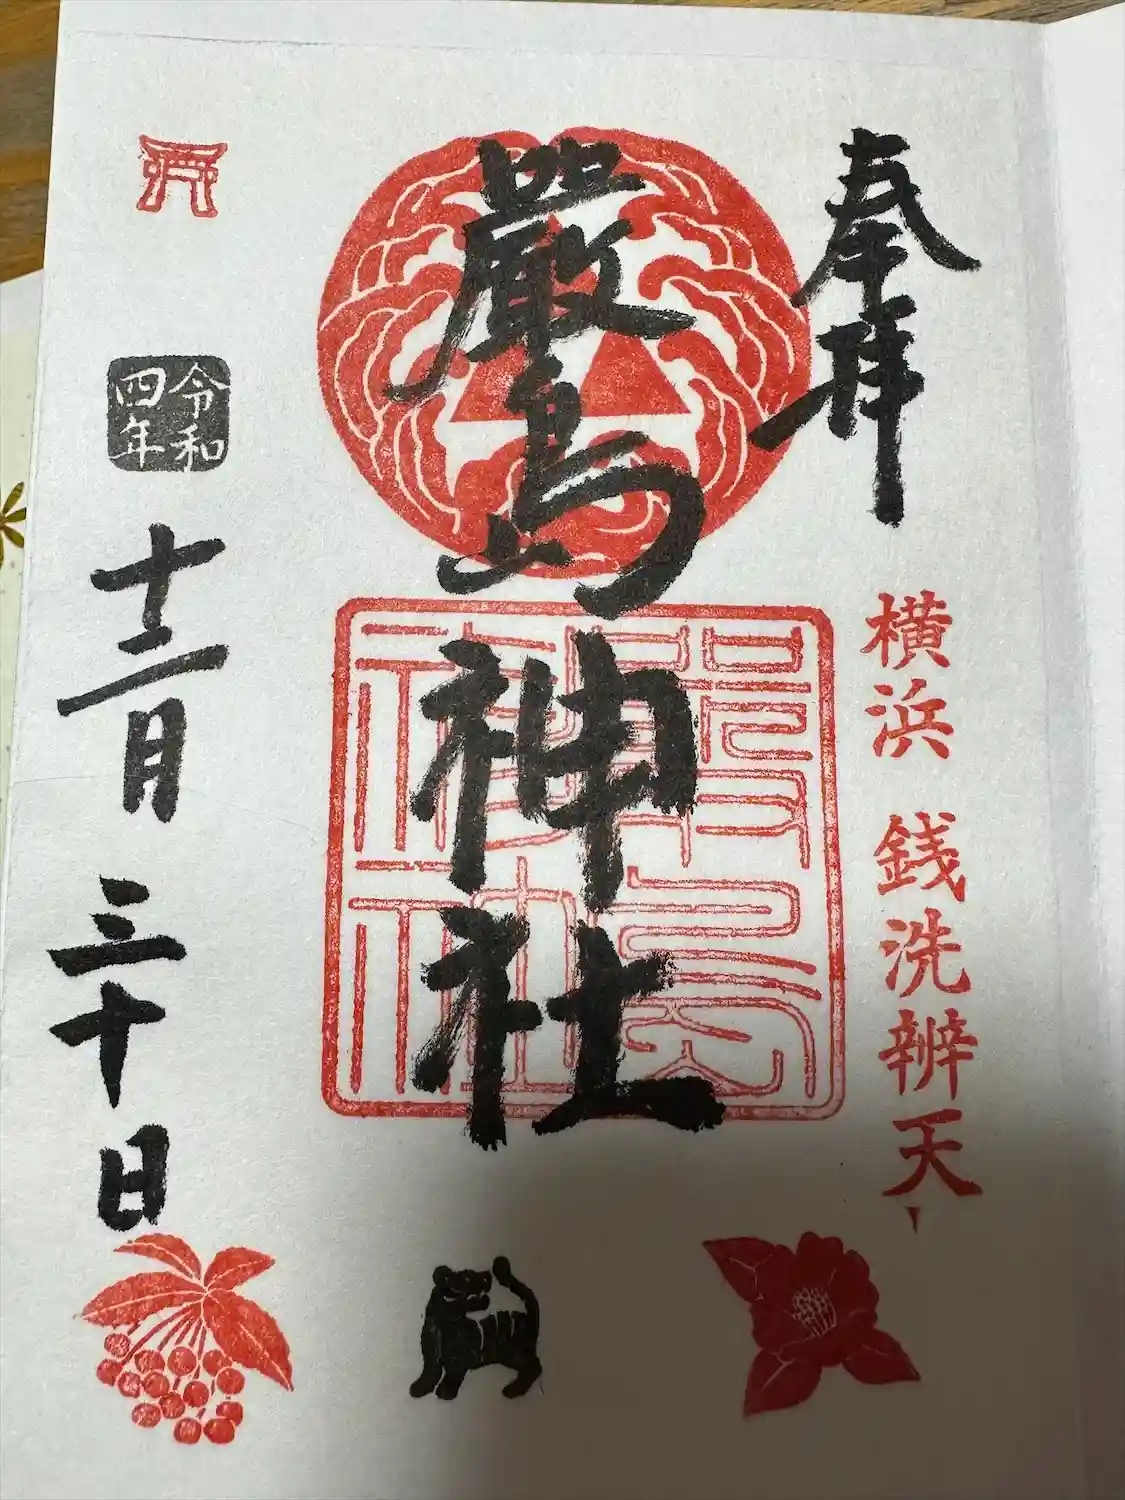 奉拝
横浜 銭洗辨天
厳島神社
厳島神社
令和四年
十二月三十日